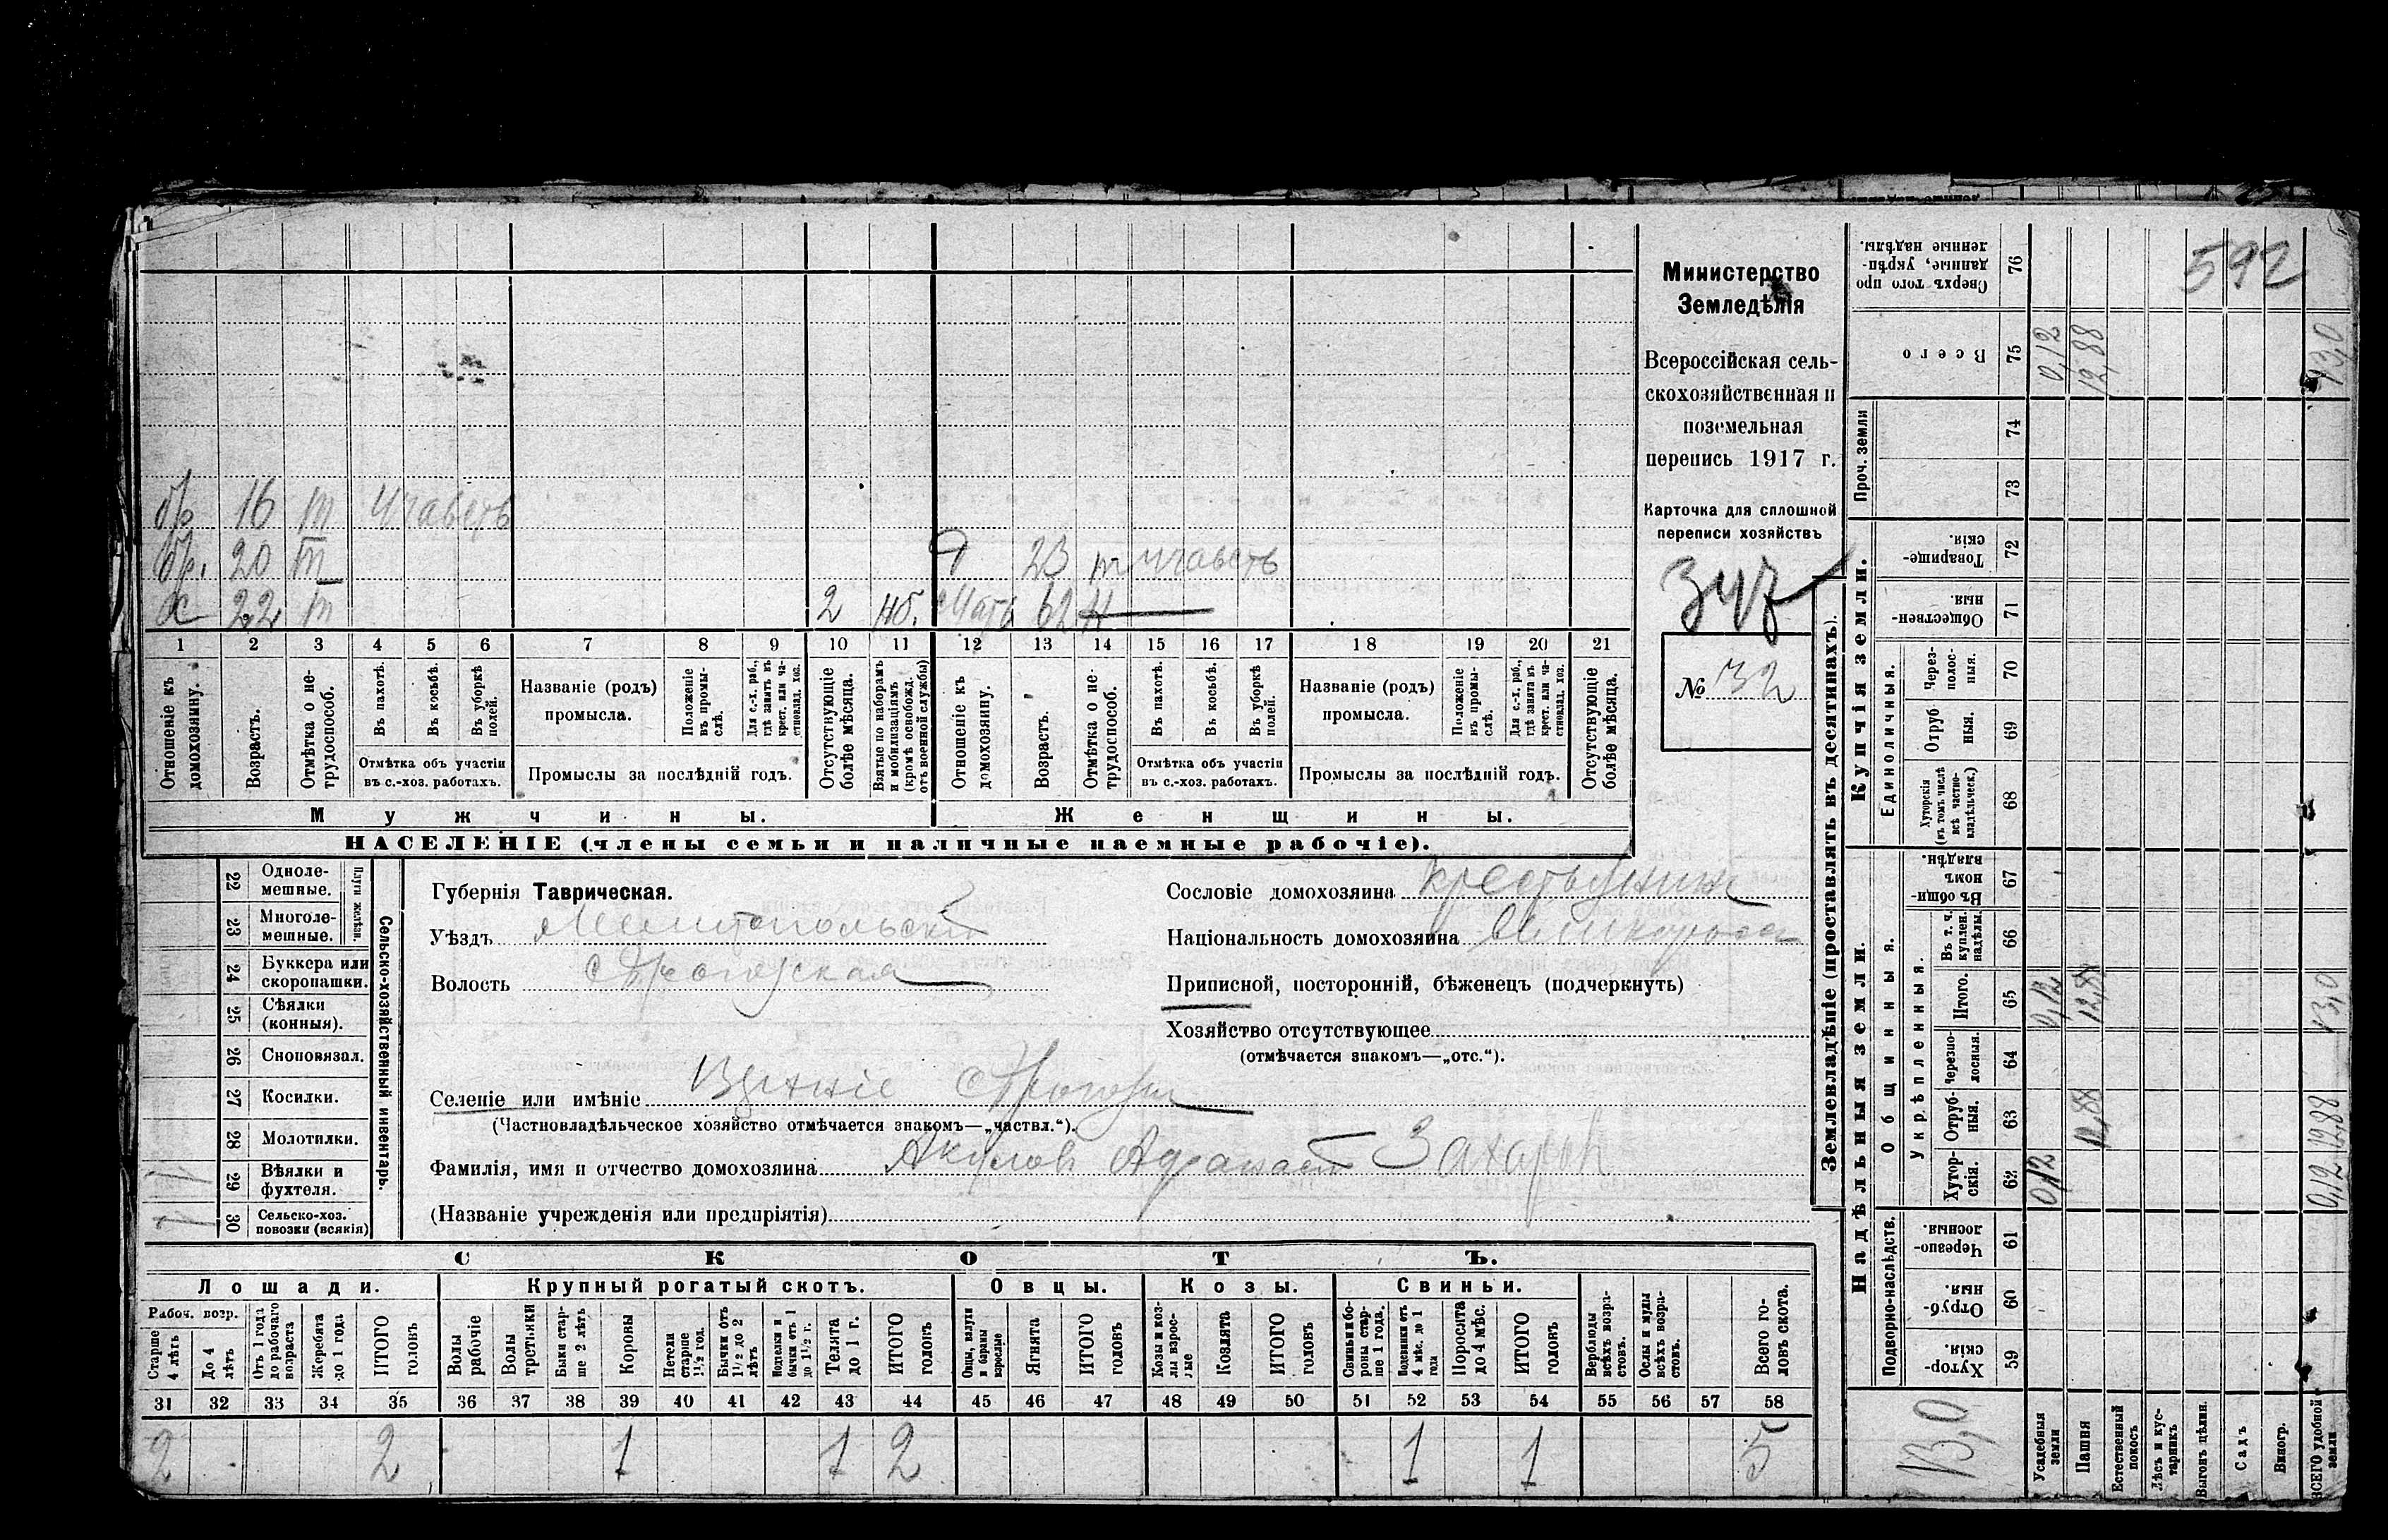 592
Министерство
Земледѣлія
Всероссійская сель-
скохозяйственная и
поземельная
перепись 1917 г.
Карточка для сплошной
переписи хозяйствъ
№ 32
бр 16 т
бр. 20 т
х 22 т 2 мб. мать 62 н
23 т
1 2 3 4 5 6 7 8 9 10 11 12 13 14 15 16 17 18 19 20 21
Отношеніе къ домохозяину.
Возрастъ.
Отмѣтка о не-трудоспособ.
Въ пахотѣ.
Въ косьбѣ.
Въ уборкѣ полей.
Отмѣтка объ участіи
въ с.-хоз. работахъ.
Названіе (родъ)
промысла.
Положеніе въ промы-слѣ.
Для с.-х. раб., гдѣ занятъ въ крест. или ча-стновлад. хоз.
Промыслы за послѣдній годъ.
Отсутствующіе болѣе мѣсяца.
Взятые по наборамъ и мобилизаціямъ (кромѣ освобожд. отъ военной службы)
Отношеніе къ домохозяину.
Возрастъ.
Отмѣтка о не-трудоспособ.
Въ пахотѣ.
Въ косьбѣ.
Въ уборкѣ полей.
Отмѣтка объ участіи
въ с.-хоз. работахъ.
Названіе (родъ)
промысла.
Положеніе въ промы-слѣ.
Для с.-х. раб., гдѣ занята въ крест. или ча-стновлад. хоз.
Промыслы за послѣдній годъ.
Отсутствующіе болѣе мѣсяца.
Мужчины.
Женщины.
НАСЕЛЕНІЕ (члены семьи и наличные наемные рабочіе).
Сельско-хозяйственный инвентарь.
Плуги желѣзн.
22 Одноле-мешные.
23 Многоле-мешные.
24 Буккера или скоропашки.
25 Сѣялки (конныя).
26 Сноповязал.
27 Косилки.
28 Молотилки.
29 Вѣялки и фухтеля.
1 30 Сельско-хоз. повозки (всякія)
Губернія Таврическая.
Уѣздъ Мелитопольскій
Волость
Селеніе или имѣніе
(Частновладѣльческое хозяйство отмѣчается знакомъ—„частвл.“).
Фамилія, имя и отчество домохозяина Акулов Афанасій Захаров
(Названіе учрежденія или предпріятія)
Сословіе домохозяина крестьянин
Національность домохозяина великоросс
Приписной, посторонній, бѣженецъ (подчеркнуть)
Хозяйство отсутствующее
(отмѣчается знакомъ—„отс.“).
СКОТЪ.
Лошади.
Крупный рогатый скотъ.
Овцы.
Козы.
Свиньи.
Рабоч. возр.
Старше 4 лѣтъ
До 4 лѣтъ
Отъ 1 года до рабочаго возраста
Жеребята до 1 года
ИТОГО головъ
Волы рабочіе
Волы третьяки
Быки стар-ше 2 лѣтъ
Коровы
Нетели старше 1½ год.
Бычки отъ 1½ до 2 лѣтъ
бычки отъ 1 до 1½ г.
Телята до 1 г.
ИТОГО головъ
Овцы, валухи и бараны взрослые
Ягнята
ИТОГО головъ
Козы и коз-лы взрос-лые
Козлята
ИТОГО головъ
Свиньи и бо-ровы стар-ше 1 года.
Подсвинки отъ 4 мѣс. до 1 года
Поросята до 4 мѣс.
ИТОГО головъ
Верблюды всѣхъ возра-стовъ.
Ослы и мулы всѣхъ возра-стовъ.
Всего го-ловъ скота.
31 32 33 34 35 36 37 38 39 40 41 42 43 44 45 46 47 48 49 50 51 52 53 54 55 56 57 58
2 2 1 1 2 1 1 5
Землевладѣніе (проставлять въ десятинахъ).
Надѣльныя земли.
Купчія земли.
Проч. земли
Подворно-наслѣдств.
Общинныя.
Укрѣпленныя.
Единоличныя.
Хутор-скія. 59
Отруб-ныя. 60
Черезпо-лосныя. 61
Хутор-скія. 62
Отруб-ныя. 63
Черезпо-лосныя. 64
Итого. 65
Въ т. ч. куплен. надѣлы. 66
Въ общи-нномъ владѣн. 67
Хуторскія (въ томъ числѣ всѣ частно-владѣльческ.) 68
Отруб ныя. 69
Через-полос-ныя. 70
Обществен-ныя. 71
Товарище-скія. 72
73
74
Всего 75
Сверхъ того про данные, укрѣп-ленные надѣлы. 76
Усадебныя земли 0,12 0,12 0,12
Пашня 12,88 12,88 12,88
Естественный покосъ
Лѣсъ и кус-тарникъ
Выгонъ цѣлин.
Садъ
Виногр.
ВСЕГО удобной земли 0,12 12,88 13,0 13,0
13,0